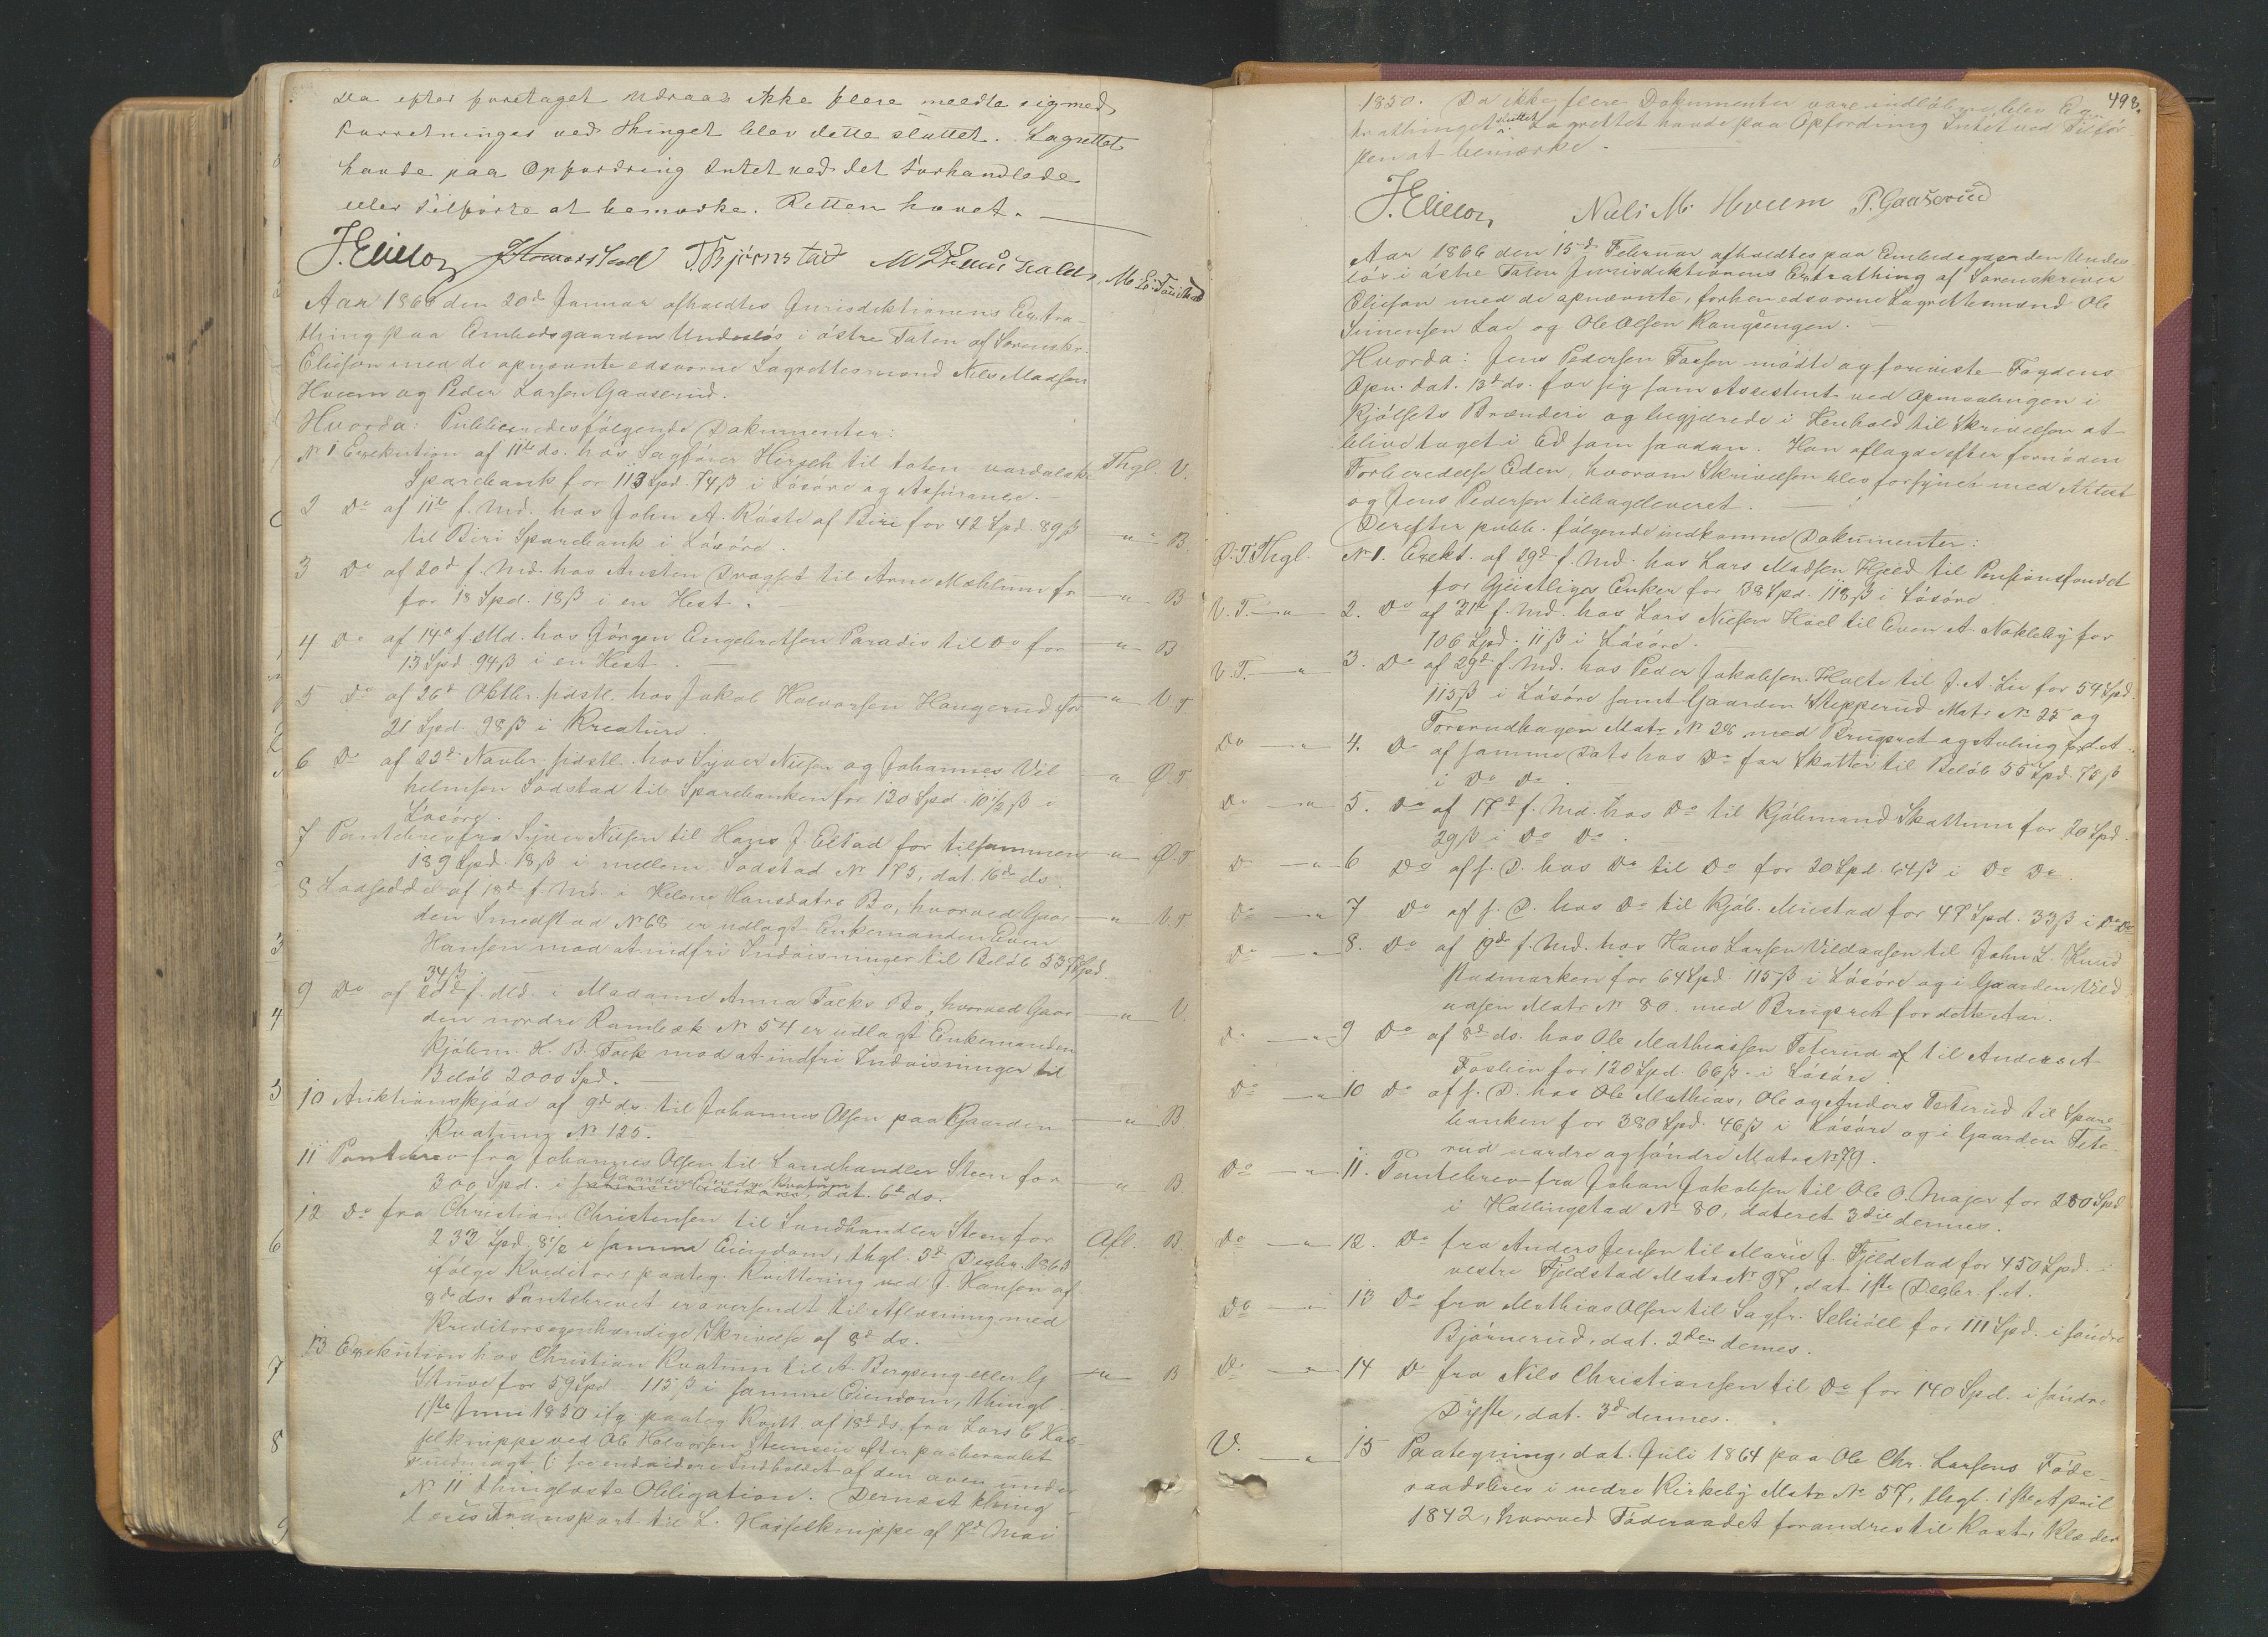 Da efter foretaget Udraab ikke flere meldte sig med
Forretninger ved Thinget blev dette sluttet. Lagrettet
havde paa Opfordring Intet ved det Forhandlede
eller Tilførte at bemærke. Retten hævet.
J. Elieson T. Bjørnstad
Aar 1866 den 20de Januar afholdtes Jurisdiktionens Extra-
thing paa Embedsgaarden Undeløs i østre Toten af Sorenskr.
Elieson med de opnævnte edsvorne Lagrettesmænd Nils Madsen
Hveem og Peder Larsen Gaaserud.
Hvorda: Publiceredes følgende Dokumenter:
No 1 Exekution af 11te ds. hos Sagfører Hirsch til Toten Vardalske Thgl. V.
Sparebank for 113 Spd. 74 ß i Løsøre og Assurance.
2 Do af 11te f. Md. hos John A. Røste af Biri for 42 Spd. 89 ß
til Biri Sparebank i Løsøre. " B
3 Do af 20d f. Md. hos Austen Dragset til Arne Mæhlum fr
for 18 Spd. 18 ß i en Hest. " B
4 Do af 14d f. Md. hos Jørgen Engebretsen Paradis til Do for " B
13 Spd. 94 ß i en Hest.
5 Do af 26d Oktbr. sidstl. hos Jakob Halvorsen Haugerud for " V.T
21 Spd. 98 ß i Kreature.
6 Do af 23d Novbr. sidstl. hos Syver Nilsen og Johannes Vil " Ø.T
helmsen Sodstad til Sparebanken for 130 Spd. 10 1/2 ß i
Løsøre.
7 Pantebrev fra Syver Nilsen til Hans J. Elstad for tilsammen " Ø.T
189 Spd. 18 ß i mellem Sodstad No 175, dat. 16de ds.
8 Lodseddel af 18d f. Md. i Helene Hansdatrs Bo, hvorved Gaar " V.T.
den Smedstad No 68 er udlagt Enkemanden Even
Hansen mod at indfri Indvisninger til Beløb 537 Spd.
34 ß.
9 Do af f. Md. i Madame Anna Facks Bo, hvorved Gaar " V.
den nordre Rambæk No 54 er udlagt Enkemanden
Kjøbm. H. B. Fack mod at indfri Indvisninger til
Beløb 2000 Spd.
10 Auktionsskjøde af 9d ds. til Johannes Olsen paa Gaarden " B
Kvatum No 125.
11 Pantebrev fra Johannes Olsen til Landhandler Steen for
300 Spd. i Gaarden nedre Kvatum, dat. 6te ds. " B
12 Do fra Christian Christensen til Landhandler Steen for
232 Spd. 8 1/2 i samme Eiendom, thgl. 5d Decbr. 1863 Afl. B
ifølge Kreditors paateg. Kvittering ved J. Hansen af
8de ds. Pantebrevet er oversendt til Aflæsning med
Kreditors egenhændige Skrivelse af 8d ds.
13 Exekution hos Christian Kvatum til A. Bergseng eller G " B
Struve for 59 Spd 115 ß i samme Eiendom, thingl.
1ste Juni 1850 ifg. paateg. Kvitt. af 18d ds. fra Lars C Has-
selknippe ved Ole Halvorsen efter paaberaabt
Fuldmagt (: see endvidere Indholdet af den oven under
No 11 thinglæste Obligation. Dernæst thing
læses Transport til L. Hasselknippe af 7d Mai
498.
1850. Da ikke flere Dokumenter vare indløbne, blev Ex-
trathinget sluttet. Lagrettet havde paa Opfordring Intet ved Tilfør-
slen at bemærke.
J. Elieson Nils M. Hveem P. Gaaserud
Aar 1866 den 15d Februar afholdtes paa Embedsgaarden Unde-
løs i østre Toten Jurisdiktionens Extrathing af Sorenskriver
Elieson med de opnævnte, forhen edsvorne Lagrettesmænd Ole
Simensen Lae og Ole Olsen Kongsengen.
Hvorda: Jens Pedersen Fossen mødte og foreviste Fogdens
Opn. dat. 13d ds. for sig som Assistent ved Opmaalingen i
Kjølsets Brænderi og begjærede i Henhold til Skrivelsen at
blive taget i Ed som saadan. Han aflagde efter fornøden
Forberedelse Eden, hvorom Skrivelsen blev forsynet med Attest
og Jens Pedersen tilbageleveret.
Derefter publ. følgende indkomne Dokumenter:
Ø.T Thgl. No 1. Exekt. af 29d f. Md. hos Lars Madsen Hjeld til Pensionsfondet
for Geistliges Enker for 38 Spd. 118 ß i Løsøre
V.T. " 2. Do af 31te f. Md. hos Lars Nielsen Hoel til Even A. Nøkleby for
106 Spd. 11 ß i Løsøre.
V.T. " 3. Do af 29d f. Md. hos Peder Jakobsen Holte til J. A. Lie for 54 Spd.
115 ß i Løsøre samt Gaarden Stepperud Matr No 25 og
Torsrudhagen Matr No 28 med Brugsret og Avling for dt A.
Do " 4. Do af samme Dato hos Do for Skatter til Beløb 55 Spd. 75 ß
i Do Do.
Do " 5. Do af 17d f. Md. hos Do til Kjøbmand Skattum for 20 Spd.
29 ß i Do Do.
D " 6 Do af s. D. hos Do til Do for 20 Spd. 64 ß i Do Do.
Do " 7 Do af s. D. hos Do til Kjøb. Mustad for 47 Spd. 33 ß i Do Do
Do " 8. Do af 19de f. Md. hos Hans Larsen Vildaasen til John L. Knud
Rudmarken for 64 Spd 115 ß i Løsøre og i Gaarden Vild
aasen Matr No 80. med Brugsret for dette Aar.
Do " 9 Do af 8d ds. hos Ole Mathiassen Teterud af til Anders A
Foslien for 120 Spd. 66 ß i Løsøre.
Do " 10 Do af s. D. hos Ole Mathias, Ole og Anders Teterud til Spare
banken for 380 Spd. 46 ß i Løsøre og i Gaarden Tete-
rud nordre og søndre Matr No 79.
Do " 11. Pantebrev fra Johan Jakobsen til Ole O. Majer for 280 Spd
i Hallingstad No 80, dateret 3die dennes.
Do " 12. Do fra Anders Jensen til Marie J. Fjeldstad for 450 Spd. i
vestre Fjeldstad Matr No 97, dat. 1ste Decbr. f. A.
Do " 13 Do fra Mathias Olsen til Sagfr. Schiøll for 111 Spd. i søndre
Bjørnerud, dat. 2den dennes.
Do " 14 Do fra Nils Christiansen til Do for 140 Spd. i søndre
Dyste, dat. 3d dennes.
V. " 15 Paategning, dat. Juli 1864 paa Ole Chr. Larsens Føde-
raadsbrev i nedre Kirkeby Matr No 57, thgl. 1ste April
1842, hvorved Føderaadet forandres til Kost, Klæder